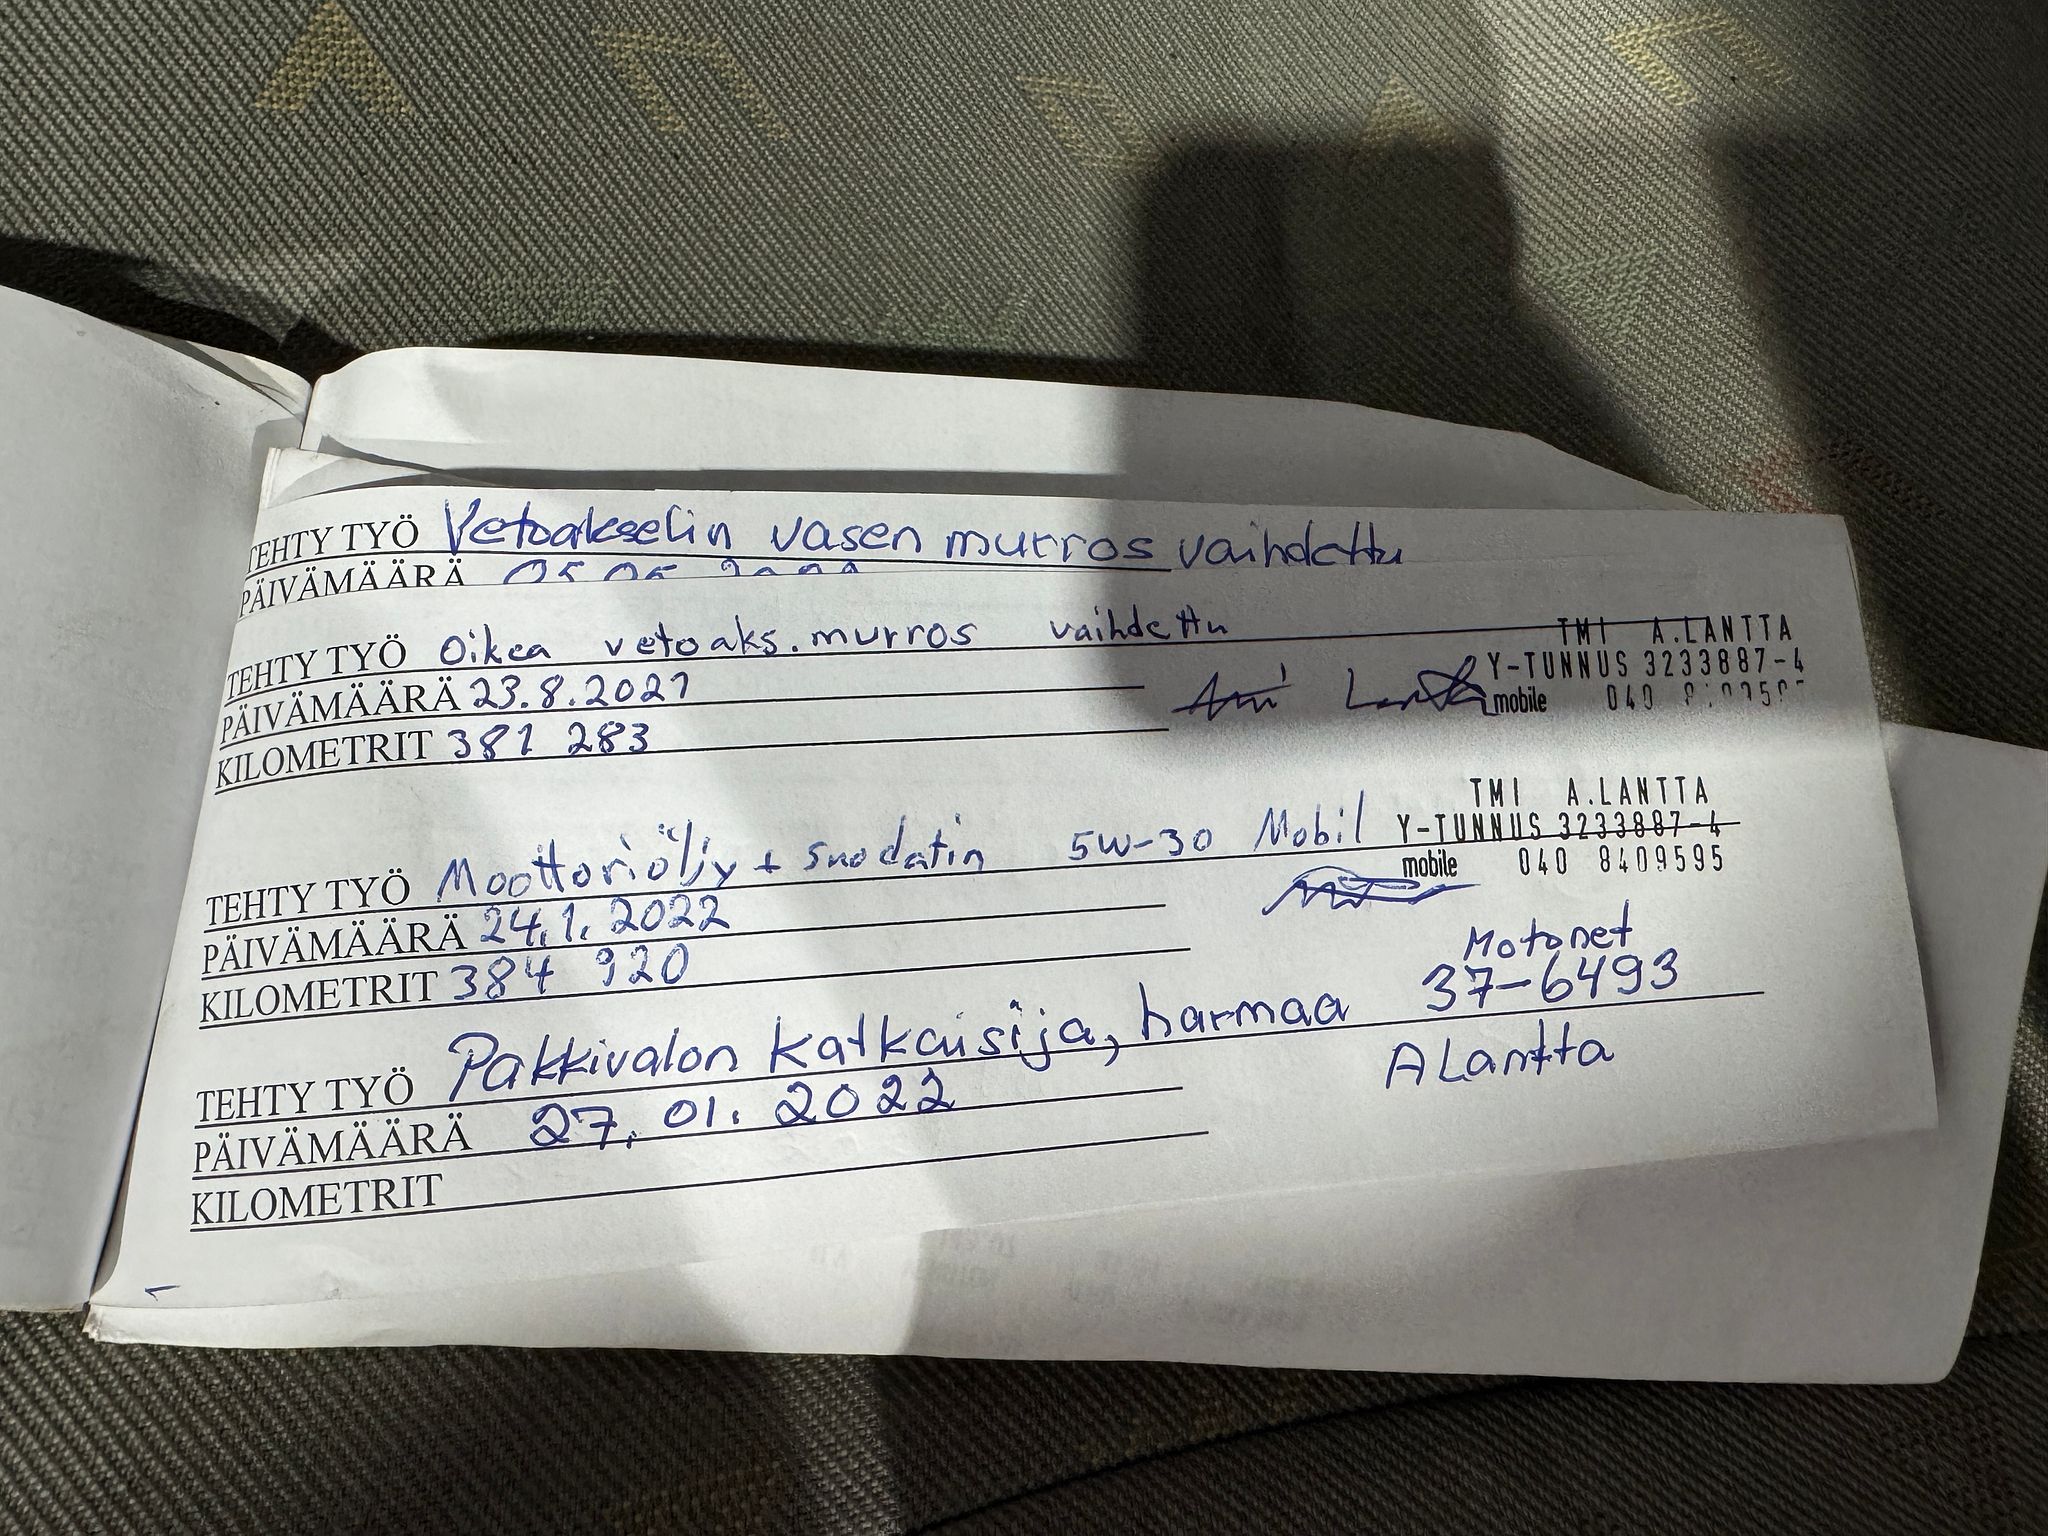 TEHTY TYÖ Vetoakselin vasen murros vaihdettu
PÄIVÄMÄÄRÄ
TEHTY TYÖ Oikea vetoaks.murros vaihdettu
TMI A.LANTTA
PÄIVÄMÄÄRÄ 23.8.2021
Y-TUNNUS 3233887-4
mobile 040
KILOMETRIT 381 283
TMI A.LANTTA
TEHTY TYÖ Moottoriöljy + suodatin 5W-30 Mobil
Y-TUNNUS 3233887-4
mobile 040 8409595
PÄIVÄMÄÄRÄ 24.1.2022
KILOMETRIT 384 920
Motonet
TEHTY TYÖ Pakkivalon katkaisija, harmaa 37-6493
PÄIVÄMÄÄRÄ 27.01.2022
A Lantta
KILOMETRIT